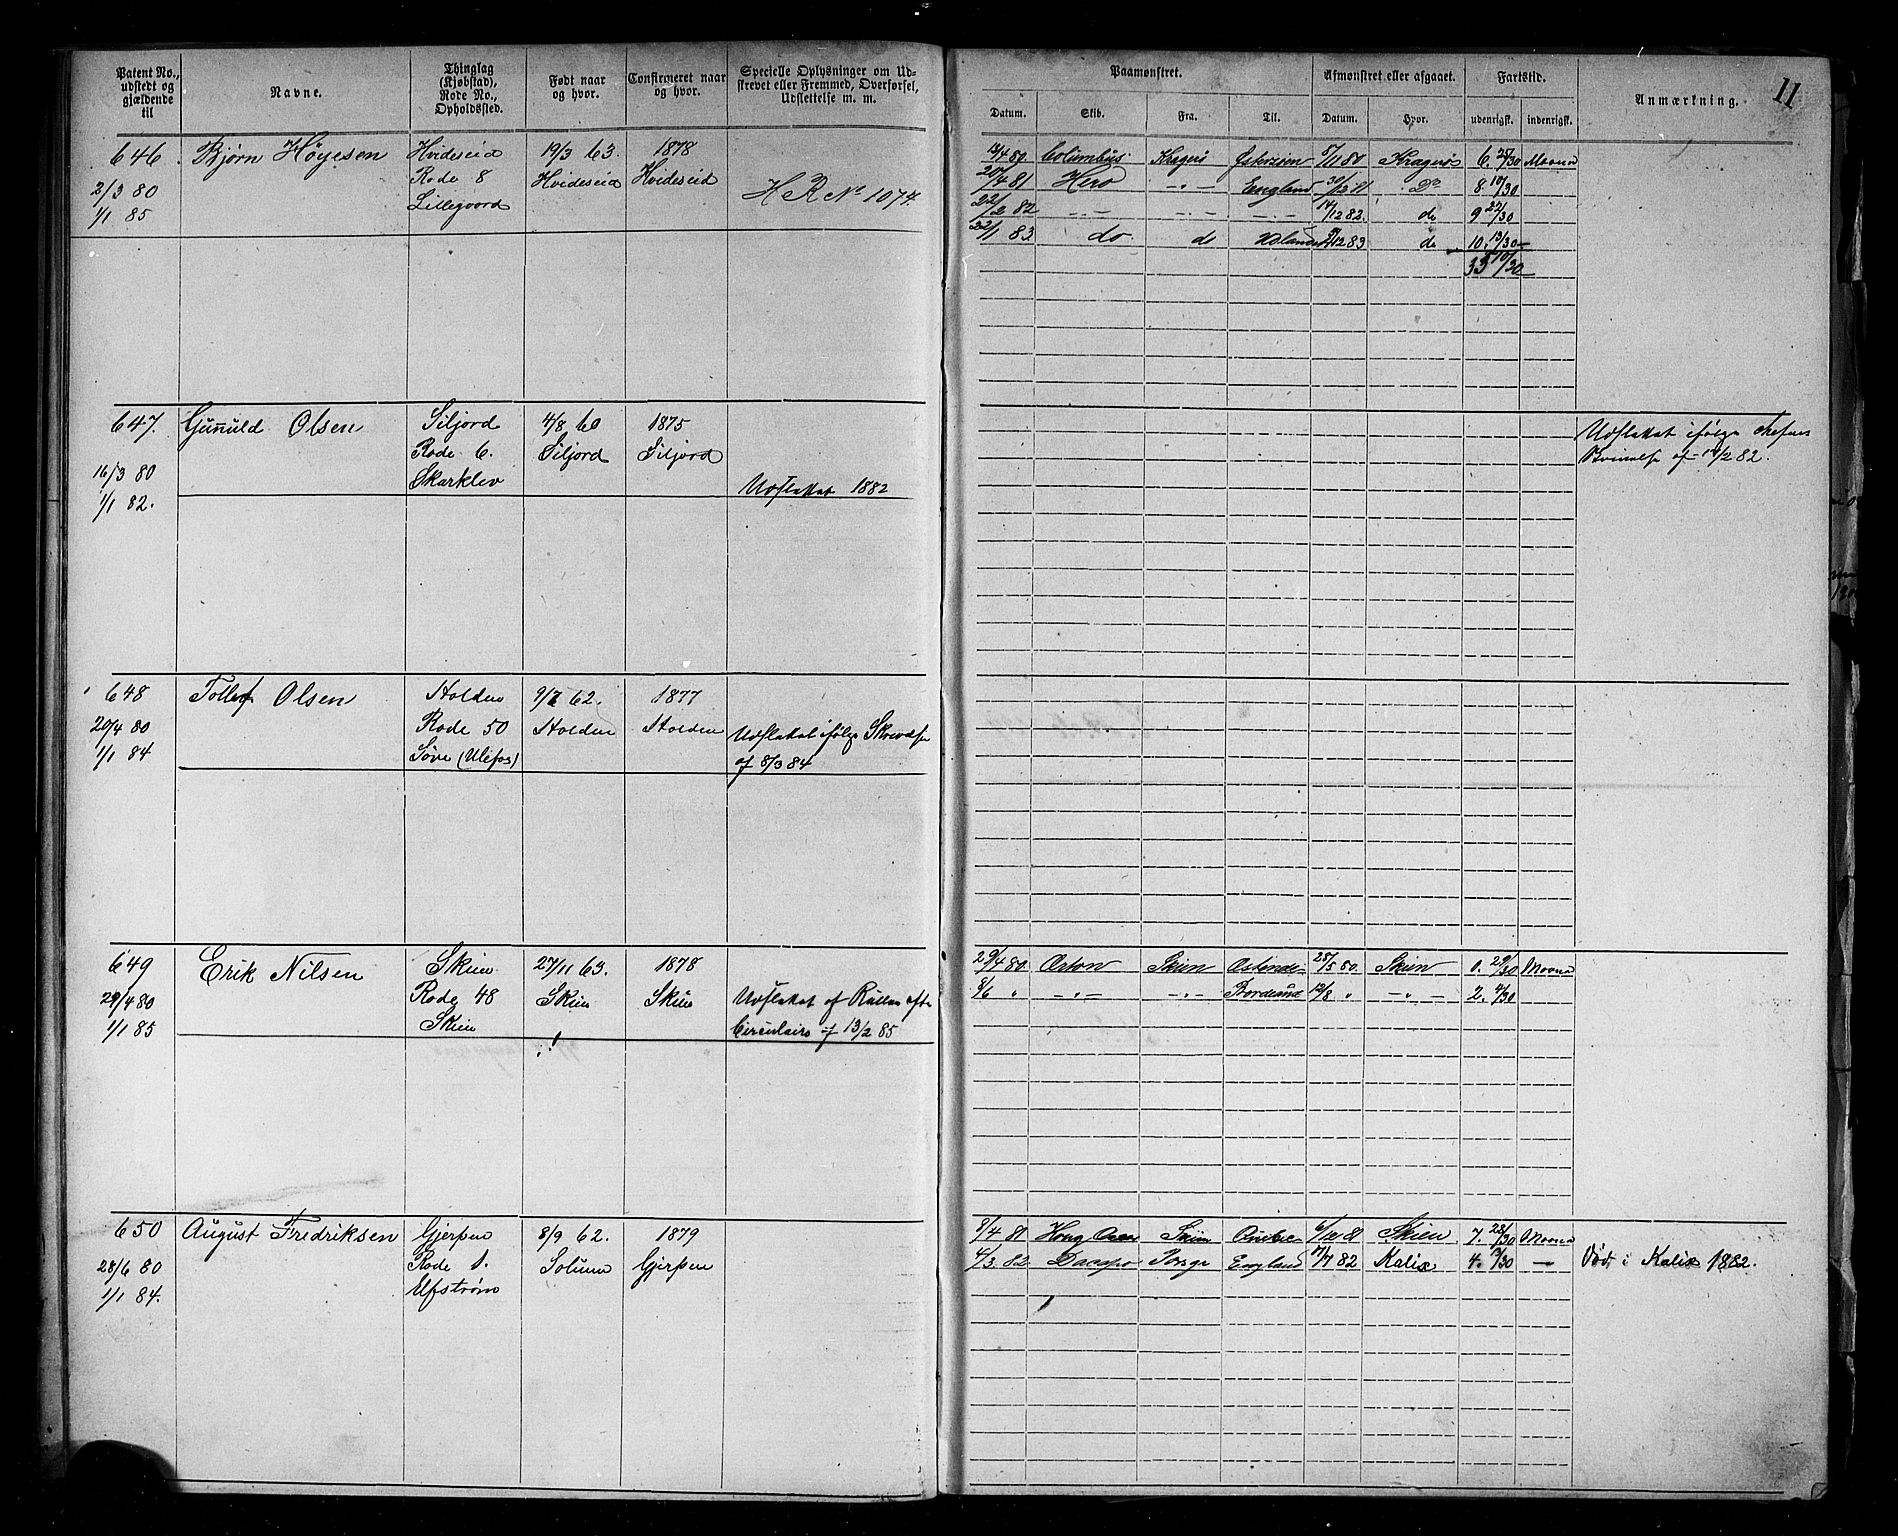 11
Patent No., udstedt og gjældende til
Navne.
Thinglag (Kjøbstad), Rode No., Opholdssted.
Født naar og hvor.
Confirmeret naar og hvor.
Specielle Oplysninger om Udskrevet eller Fremmed, Overførsel, Udslettelse m. m.
Paamønstret.
Afmønstret eller afgaaet.
Fartstid.
Anmærkning.
Datum. Skib. Fra. Til. Datum. Hvor. udenrigsk. indenrigsk.
646. Bjørn Høyesen Hvideseid 19/3 63. 1878
2/3 80 Rode 8 Hvideseid Hvideseid
1/1 85 Lillegaard H R No 1074.
/4 80 Columbus Kragerø Østersøen 5/11 80 Kragerø 6. 25/30 Maaned
20/4 81 Hero -"- England 30/12 81 Do 8 10/30
22/2 82 -"- -"- -"- 14/12 82. do 9 22/30
22/1 83. do. do 12 83 do 10. 13/30
33 10/30
647. Gunuld Olsen Siljord 4/8 60 1875
Rode 6. Siljord Siljord
16/3 80 Skarklev
1/1 82. Udslettet 1882
Udslettet ifølge
af 14/2 82.
648 Tollef Olsen Holden 9/7 62. 1877
20/4 80 Rode 50 Holden Holden
1/1 84 Søve (Ulefos)
Udslettet ifølge Skrivelse
af 8/3 84
649 Erik Nilsen Skien 27/11 63. 1878
29/4 80 Rode 48 Skien Skien
1/1 85 Skien
Udslettet af Rullen efter
Circulaire af 13/2 85
29/4 80 Skien Ostende 28/5 80. Skien 0. 29/30 Maaned
8/6 " -"- -"- 12/8 " -"- 2. 4/30
650 August Fredriksen Gjerpen 8/9 62. 1879
28/6 80 Rode 1. Solum Gjerpen
1/1 84. Elfstrøm
8/4 81 Skien 6/12 81 Skien 7. 28/30 Maaned
4/3. 82 Dacapo Porsgr England 7/7 82 Kalix 4. 3/30 —
Død i Kalix 1882.